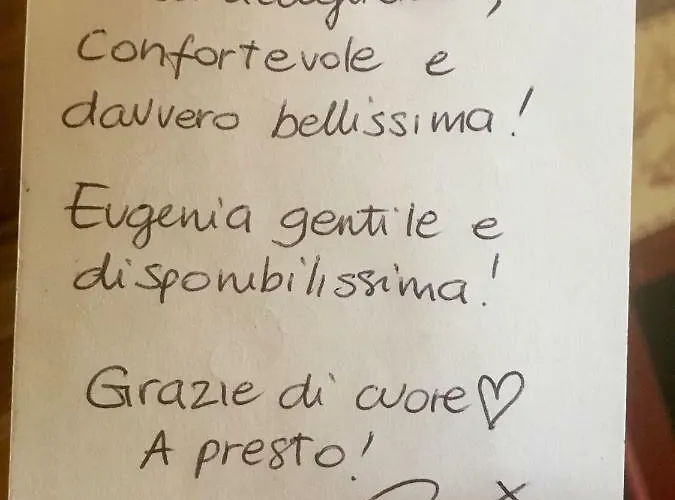 Confortevole e
davvero bellissima!
Eugenia gentile e
disponibilissima!
Grazie di cuore♡
A presto!